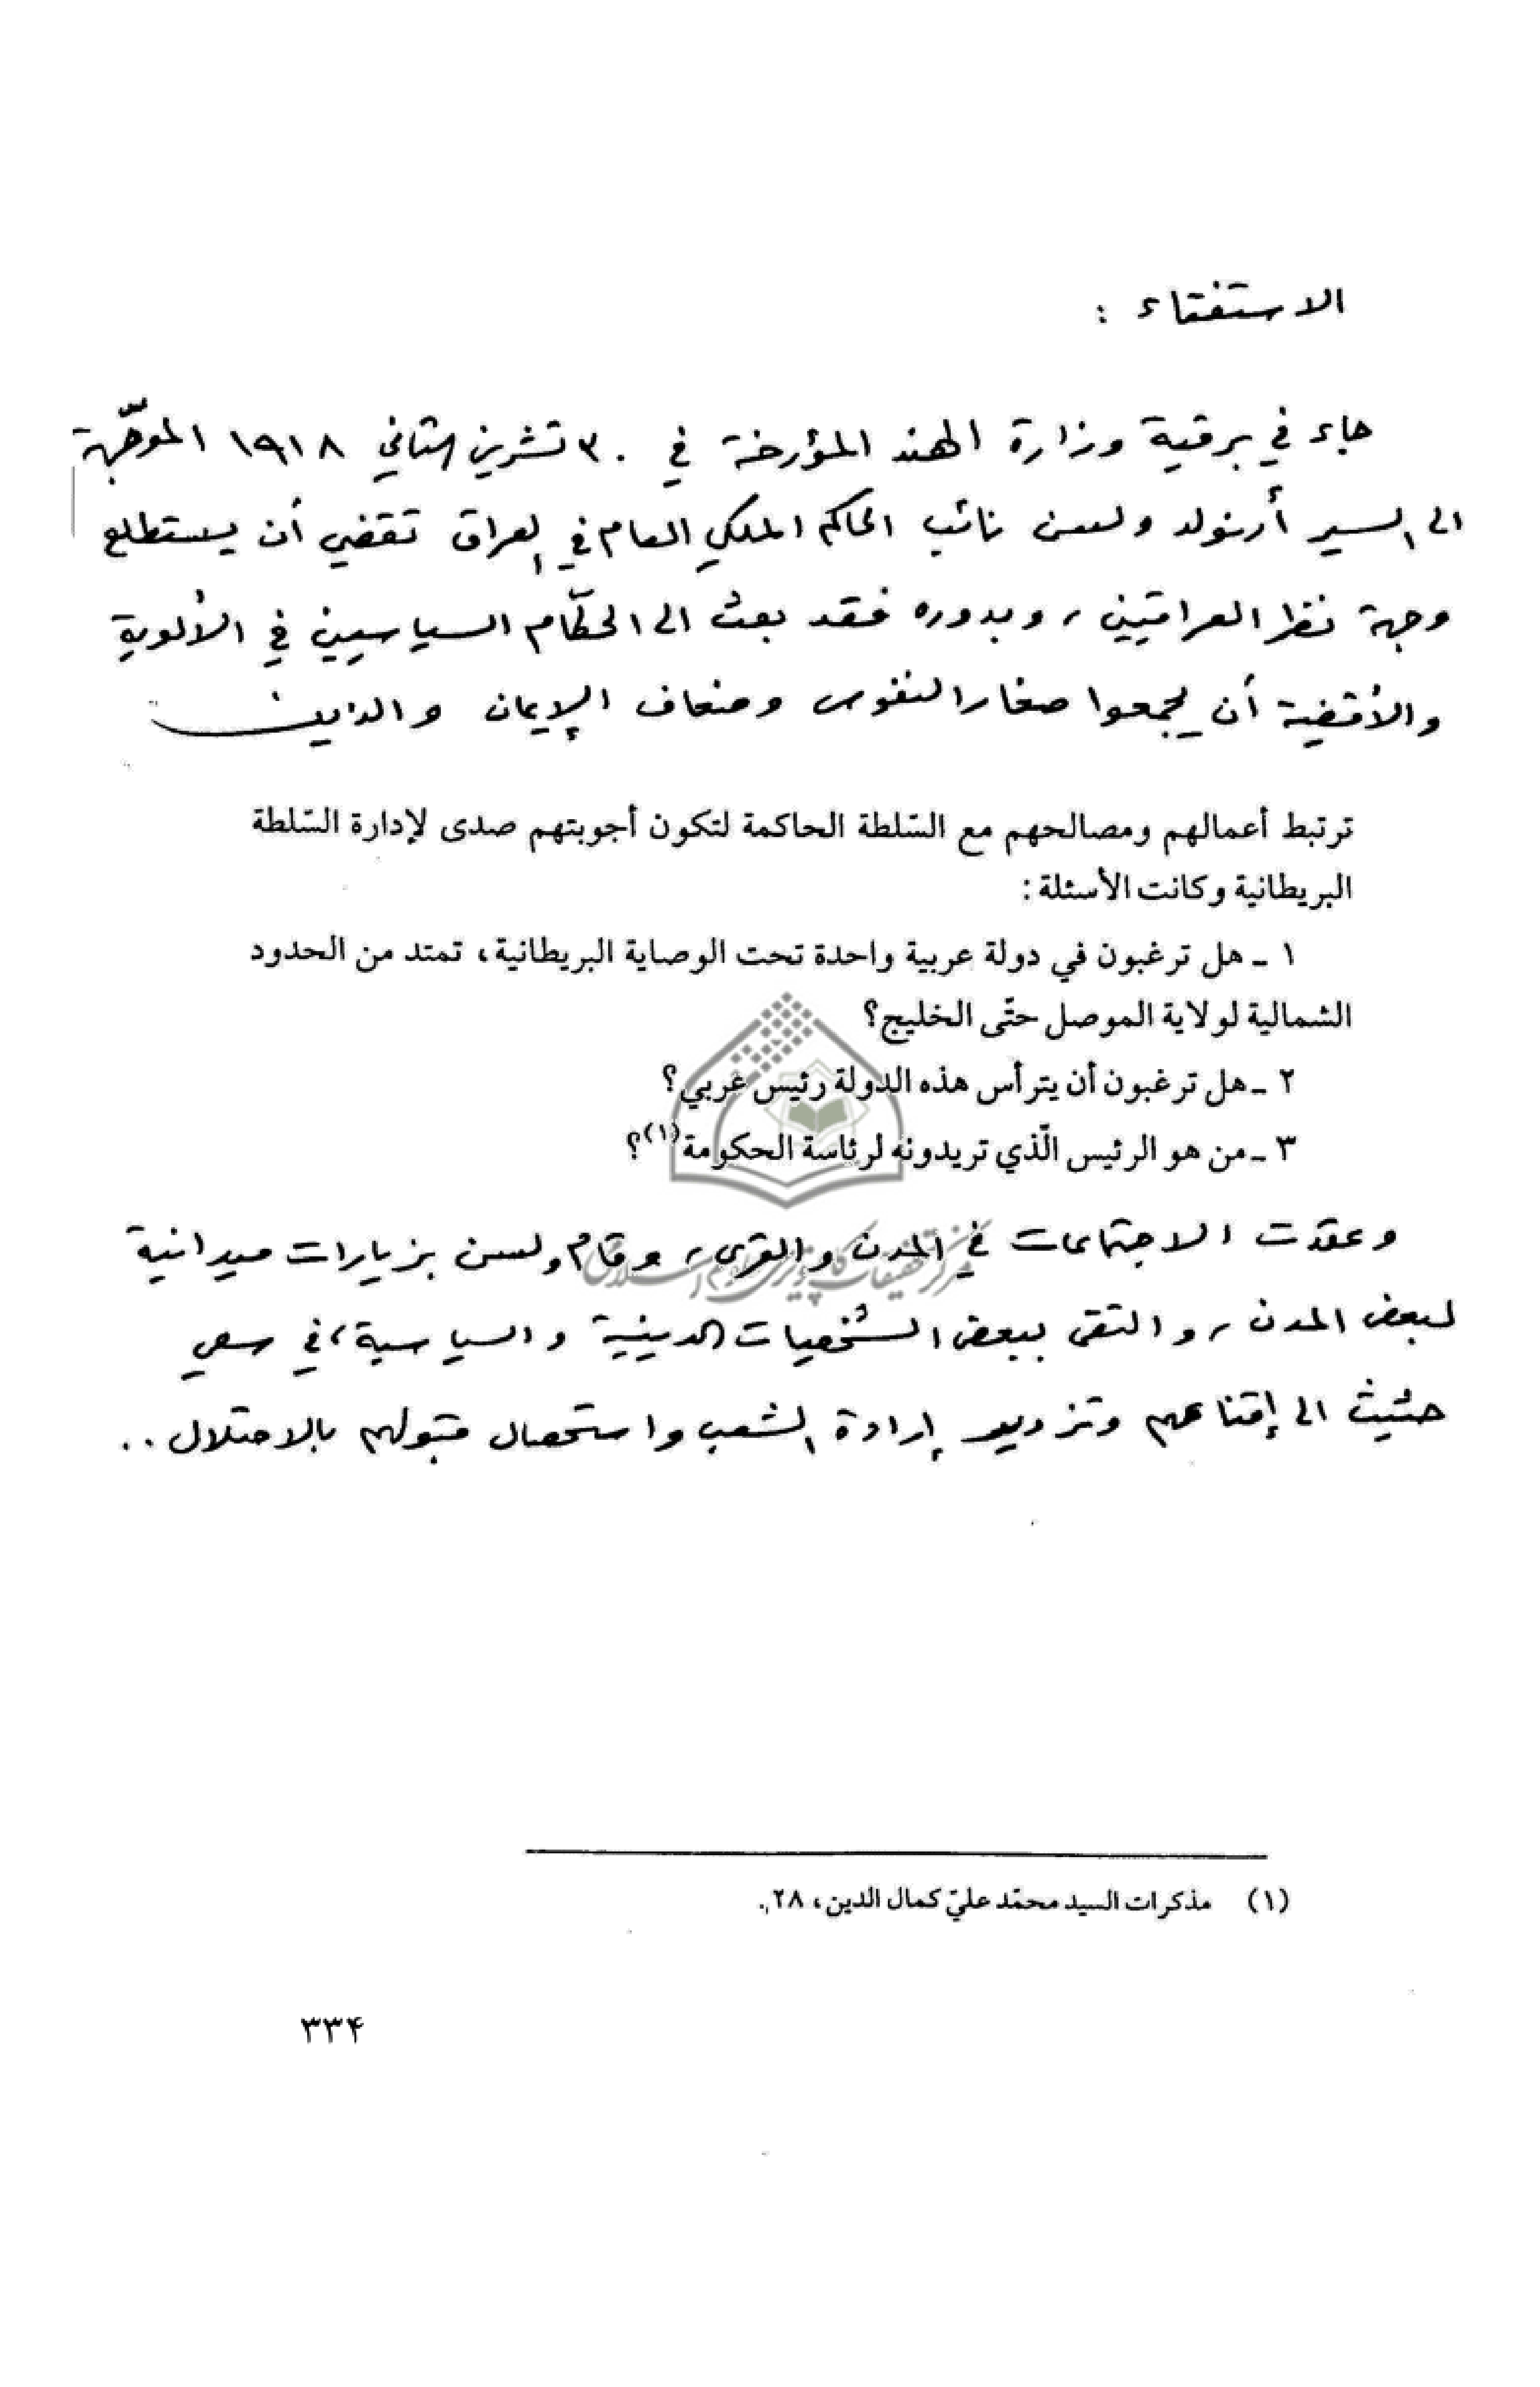 الاستفتاء :
جاء في برقية وزارة الهند المؤرخة في ٣٠ تشرين الثاني ١٩١٨ الموجّهة
الى السير أرنولد ولسن نائب الحاكم الملكي العام في العراق تقضي أن يستطلع
وجهة نظر العراقيين، وبدوره فقد بعث الى الحكّام السياسيين في الألوية
والأقضية أن يجمعوا صغار النفوس وضعاف الإيمان والذين
ترتبط أعمالهم ومصالحهم مع السّلطة الحاكمة لتكون أجوبتهم صدى لإدارة السّلطة
البريطانية وكانت الأسئلة :
١ ـ هل ترغبون في دولة عربية واحدة تحت الوصاية البريطانية، تمتد من الحدود
الشمالية لولاية الموصل حتّى الخليج؟
٢ ـ هل ترغبون أن يترأس هذه الدولة رئيس عربي؟
٣ ـ من هو الرئيس الّذي تريدونه لرئاسة الحكومة(١)؟
وعقدت الاجتماعات في المدن والقرى، وقام ولسن بزيارات ميدانية
لبعض المدن، والتقى ببعض الشخصيات الدينية والسياسية، في سعي
حثيث الى إقناعهم وتزوير إرادة الشعب واستحصال قبولهم بالاحتلال..
(١) مذكرات السيد محمّد عليّ كمال الدين، ٢٨.
٣٣۴